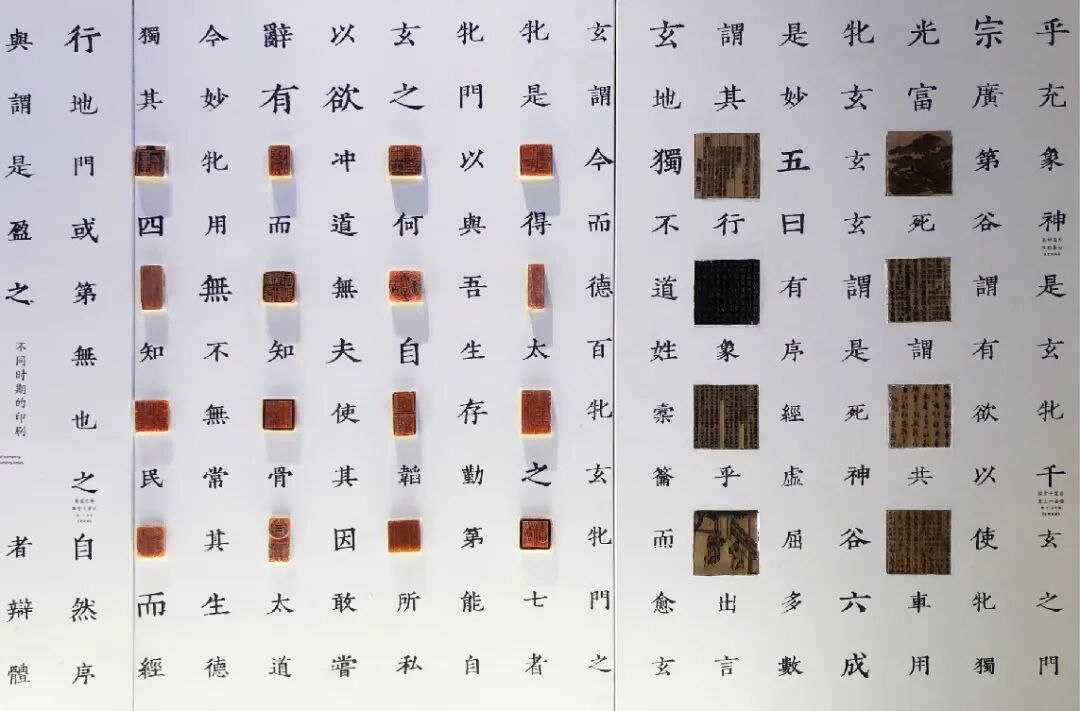 乎充象神是玄牝千玄之門
宗廣第谷謂有欲以使牝獨
光富死謂共車用
牝玄玄玄謂是死神谷六成
是妙五曰有序經虛屈多數
謂其行象乎出言
玄地獨不道姓橐籥而愈玄
玄謂今而德百牝玄牝門之
牝是得太之七者
牝門以與吾生存勤第能自
玄之何自韜所私
以欲冲道無夫使其因敢嘗
辭有而知骨太道
今妙牝用無不無常其生德
獨其四知民而經
行地門或第無也之自然序
與謂是盈之
不同时期的印刷
者辯體